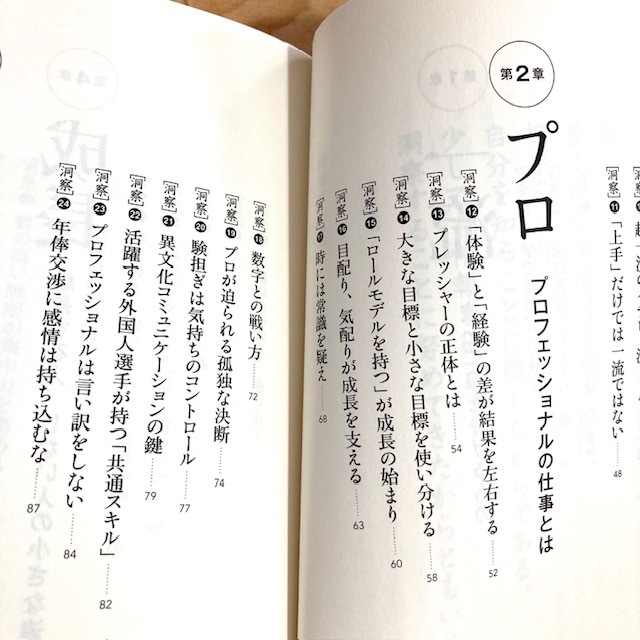 [洞察]⓫「上手」だけでは一流ではない……48
第2章
プロ
プロフェッショナルの仕事とは
[洞察]⓬「体験」と「経験」の差が結果を左右する……52
[洞察]⓭プレッシャーの正体とは……54
[洞察]⓮大きな目標と小さな目標を使い分ける……58
[洞察]⓯「ロールモデルを持つ」が成長の始まり……60
[洞察]⓰目配り、気配りが成長を支える……63
[洞察]⓱時には常識を疑え……68
[洞察]⓲数字との戦い方……72
[洞察]⓳プロが迫られる孤独な決断……74
[洞察]⓴験担ぎは気持ちのコントロール……77
[洞察]㉑異文化コミュニケーションの鍵……79
[洞察]㉒活躍する外国人選手が持つ「共通スキル」……82
[洞察]㉓プロフェッショナルは言い訳をしない……84
[洞察]㉔年俸交渉に感情は持ち込むな……87